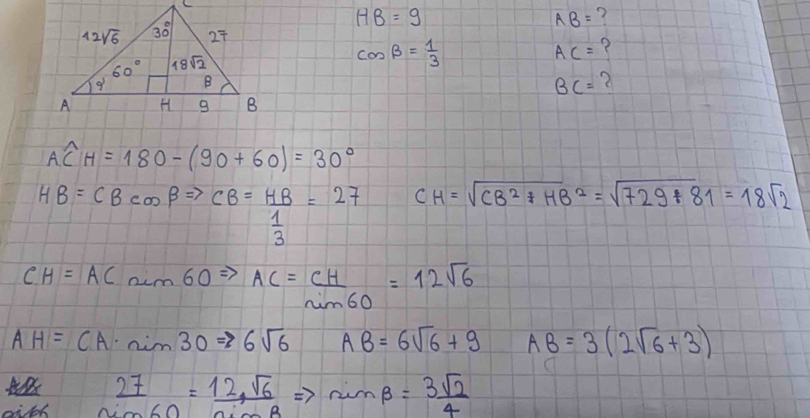 C
12√6 30° 27
60° 18√2 β
A H 9 B
HB = 9 AB = ?
cos β = 1/3 AC = ?
BC = ?
AĈH = 180 - (90 + 60) = 30°
HB = CB cos β => CB = HB / (1/3) = 27 CH = √CB² + HB² = √729 + 81 = 18√2
CH = AC sin 60 => AC = CH / sin 60 = 12√6
AH = CA · sin 30 => 6√6 AB = 6√6 + 9 AB = 3(2√6 + 3)
27 / sin 60 = 12√6 / sin β => sin β = 3√2 / 4